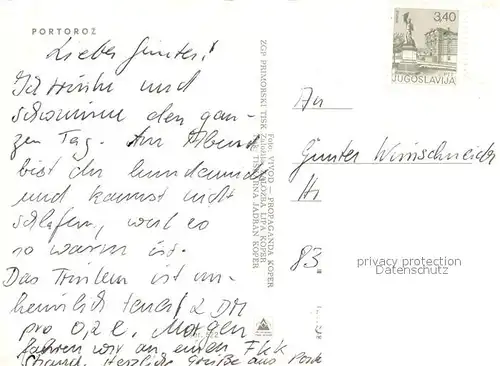 PORTOROŽ
Lieber Günter!
Ich trinke und
schwimme den gan-
zen Tag. Am Abend
bist du hundemüde
und kannst nicht
schlafen, weil es
so warm ist.
Das Trinken ist un-
heimlich teuer / 2 DM
pro 0,2 l. Morgen
fahren wir an einen FKK
Strand. Herzliche Grüße aus
Foto: VIVOD — PROPAGANDA KOPER
ZGP PRIMORSKI TISK LIPA KOPER
JADRAN KOPER
3,40
JUGOSLAVIJA
An
Günter
83
privacy protection
Datenschutz